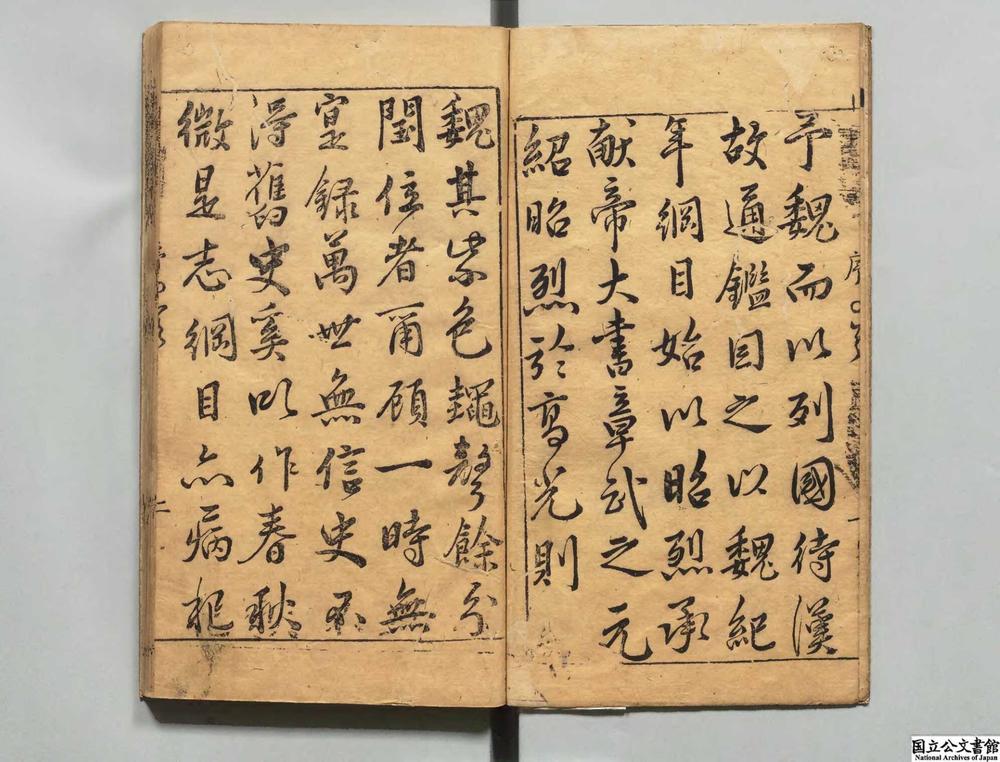 予魏而以列國待漢
故通鑑因之以魏紀
年綱目始以昭烈承
献帝大書章武之元
紹昭烈於高光則
魏其紫色鼃聲餘分
閏位者爾顧一時無
寔錄萬世無信史不
得舊史奚以作春秋
微是志綱目亦病杞
序
一
二
国立公文書館
National Archives of Japan